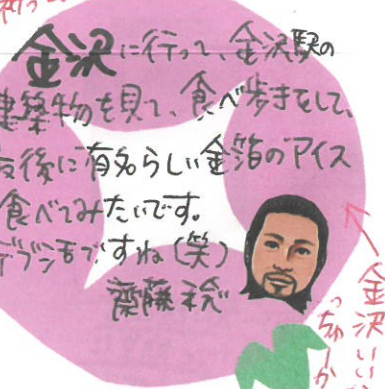 金沢に行って、金沢駅の
建築物を見て、食べ歩きをして、
最後に有名らしい金箔のアイス
食べてみたいです。
デブ活ですね(笑)
齋藤
金沢いい
っちゅーか